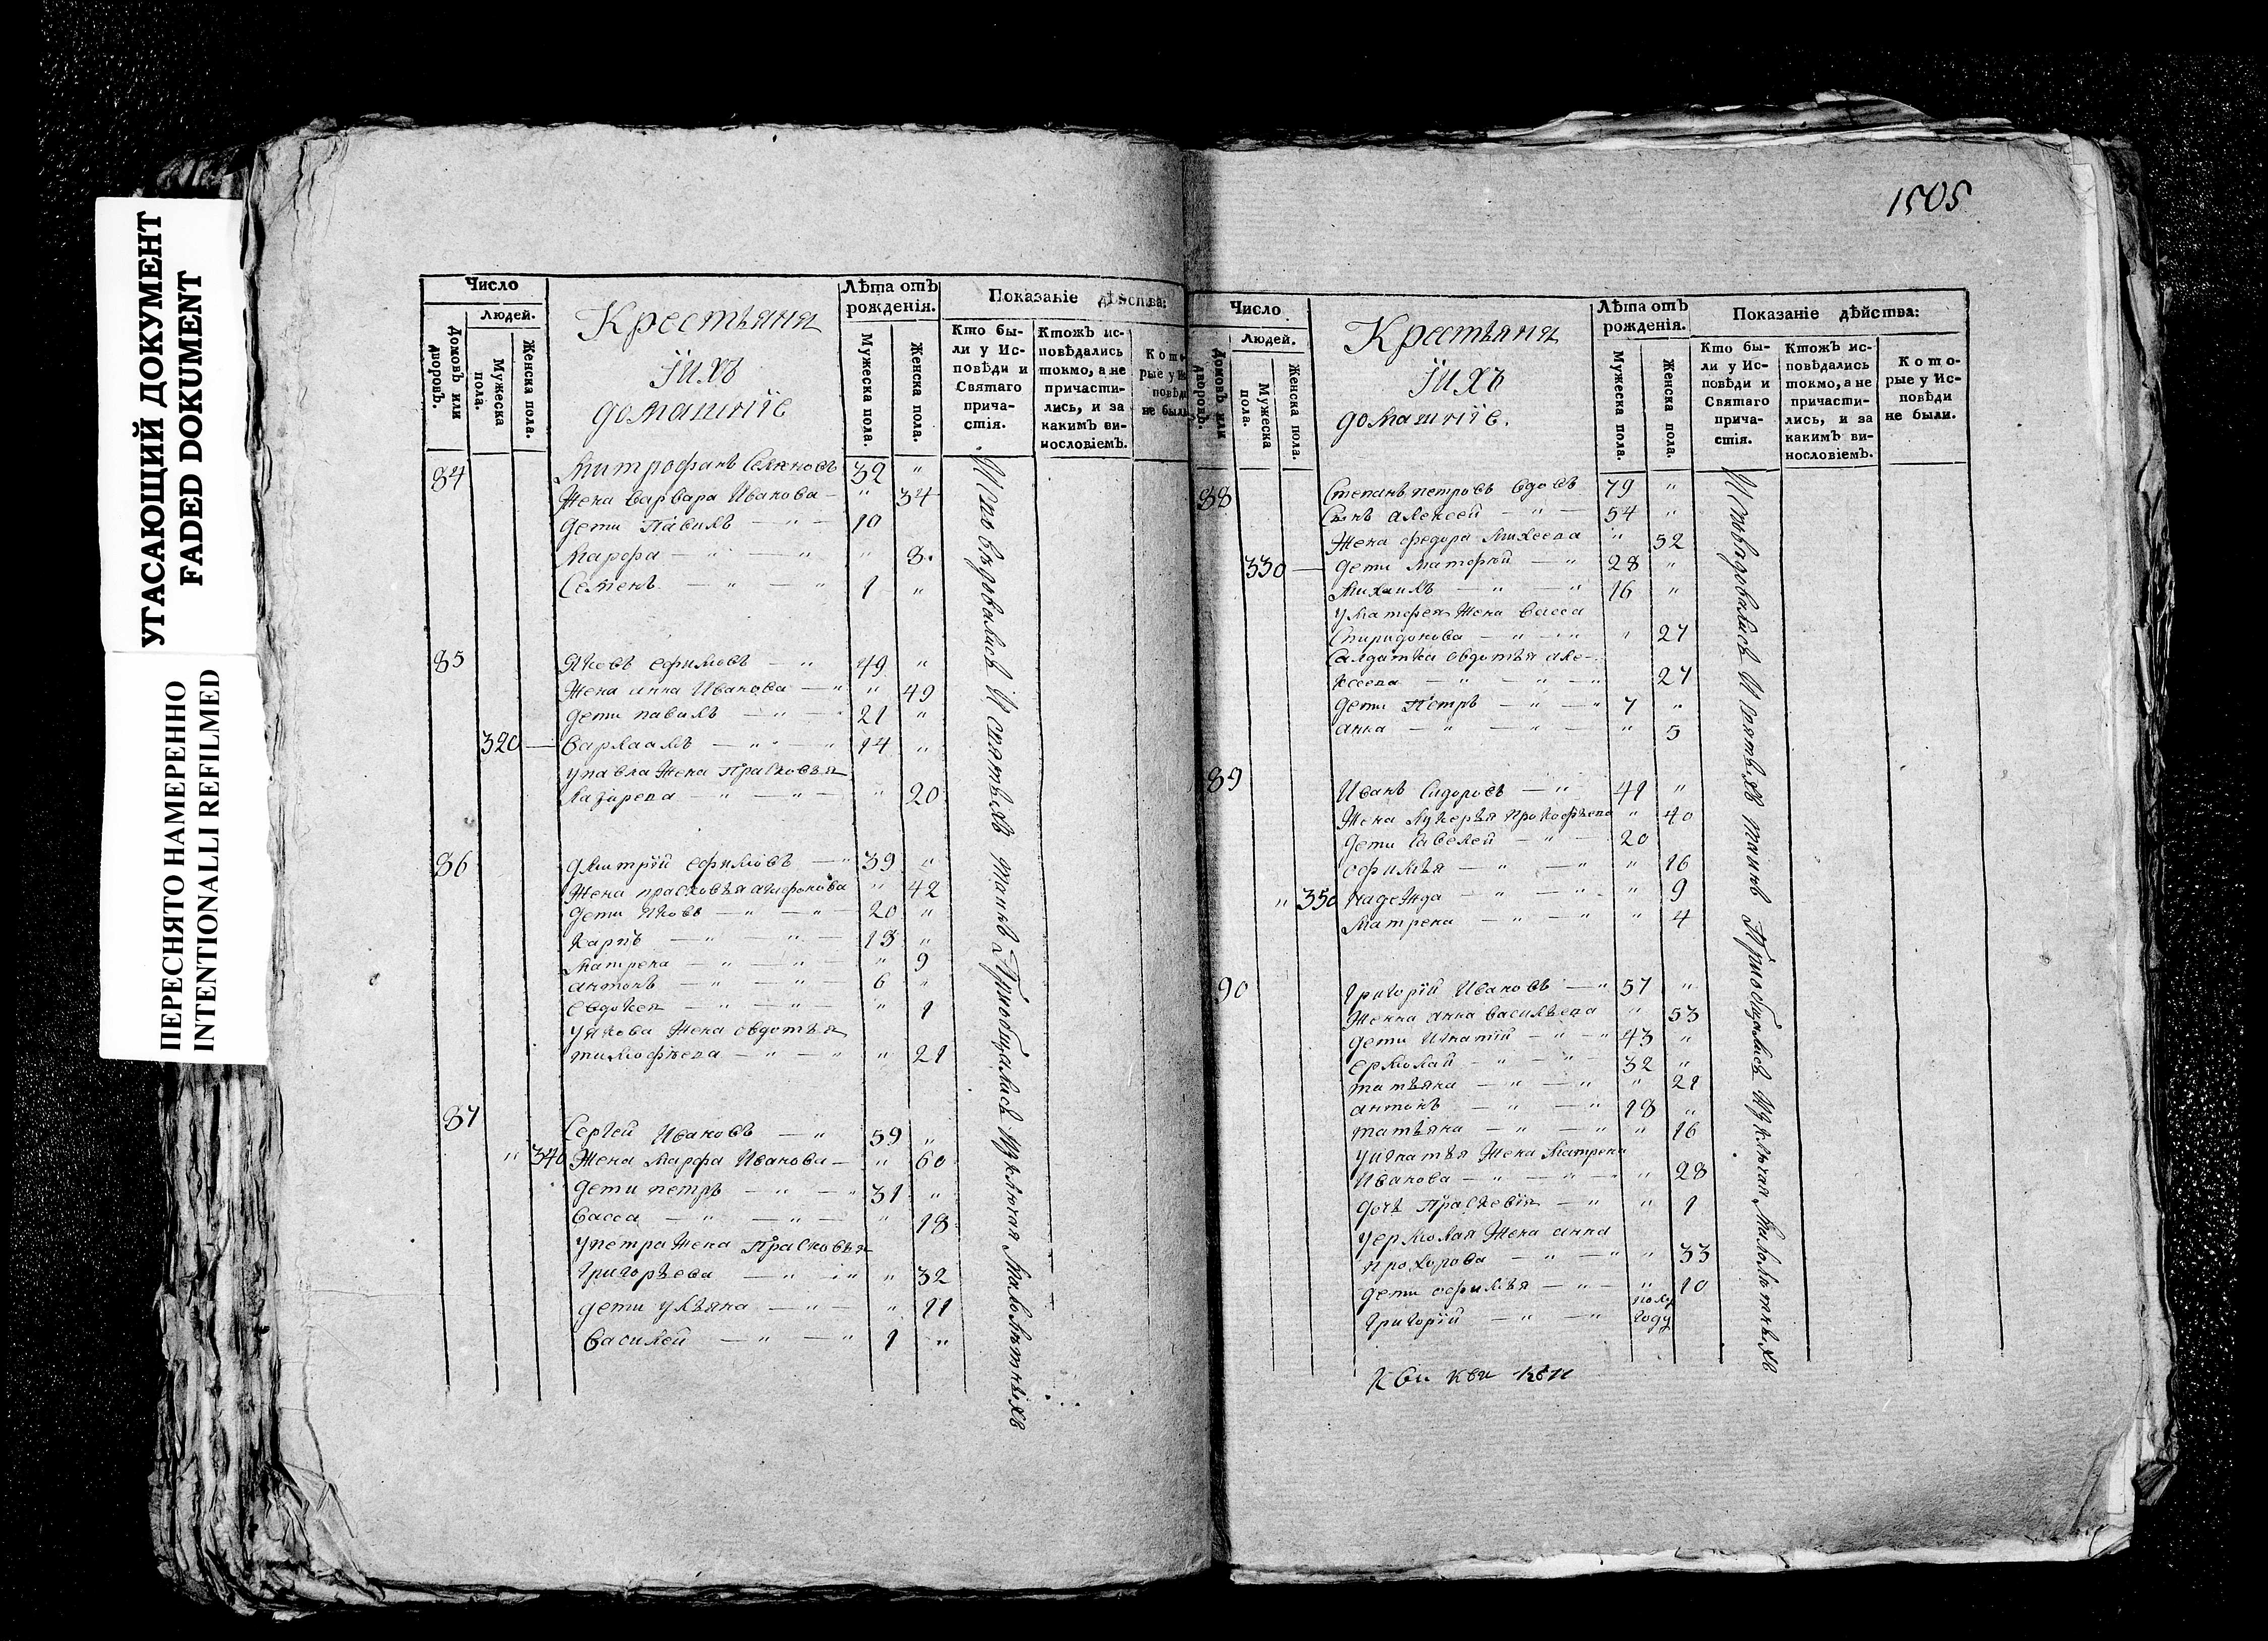 УГАСАЮЩИЙ ДОКУМЕНТ
FADED DOKUMENT
ПЕРЕСНЯТО НАМЕРЕННО
INTENTIONALLI REFILMED
Число
Людей.
Домовъ или дворовъ.
Мужеска пола.
Женска пола.
Крестьяня
Їихъ
домашнїе
Лѣта отъ рожденія.
Мужеска пола.
Женска пола.
Показаніе дѣйства:
Кто были у Исповѣди и Святаго причастія.
Ктожъ исповѣдались токмо, а не причастились, и за какимъ винословіемъ.
Которые у Исповѣди не были
84 Митрофанъ 32 "
Жена варвара Иванова — " 34
дети Павилъ — " — 10
Марфа — " — " " 8
Семенъ — " — " 1 "
85 Яковъ ефимовъ — " 49 "
Жена анна Иванова — " " 49
дети павилъ — " — " 21 "
320 — варлаамъ — " — " 14 "
упавла Жена Прасковья
Лазарева — " — " — " 20
86 дмитрїй ефимовъ — " 39 "
Жена прасковья агафонова " 42
дети Яковъ — " — " — 20 "
Карпъ — " — " — 13 "
Матрена — " — " — " 9
антонъ — " — " — 6 "
евдокея — " — " — " 1
уякова Жена овдотья
тимофѣева — " — " " 21
87 Сергей Ивановъ — " 59 "
" 340 Жена Марфа Иванова — " 60
дети петръ — " — " 31 "
васса — " — " — " 18
упетра Жена Прасковья
григорьева — " — " " 32
дети ульяна — " — " 11
василей — " — " 1 "
Исповѣдовались И святыхъ таинъ Приобщались Изключая малолѣтныхъ
1505
Число
Людей.
Домовъ или дворовъ.
Мужеска пола.
Женска пола.
Крестьяня
Їихъ
домашнїе.
Лѣта отъ рожденія.
Мужеска пола.
Женска пола.
Показаніе дѣйства:
Кто были у Исповѣди и Святаго причастія.
Ктожъ исповѣдались токмо, а не причастились, и за какимъ винословіемъ.
Которые у Исповѣди не были.
88 Степанъ петровъ вдовъ 79 "
Сынъ алексей — " — 54 "
Жена федора Михеева " 52
330 — дети Матфей — " 28 "
Михаилъ — " — " 16 "
уматфея Жена васса
Спиридонова — " — " " 27
Салдатка овдотья але-
ксеева — " — " — " 27
дети Петръ — " — " 7 "
анна — " — " " 5
89 Иванъ Сидоровъ — " 41 "
Жена Лукерья Прокофьева " 40
дети савелей — " — 20
офимья — " — " " 16
" 350 надежда — " — " — " 9
Матрена — " — " " 4
90 григорїй Ивановъ — " 57 "
Женна анна васильева " 53
дети Игнатїй — " — " 43 "
ермолай — " — " 32 "
татьяна — " — " " 21
антонъ — " — " 18 "
татьяна — " — " " 16
уигнатья Жена Матрена
Иванова — " — " — " 28
дочь Праскевїя — " " 1
уермолая Жена анна
прохорова — " — " " 33
дети офимья — " — " 10
григорїй — " — " полу году
Исповѣдовались И святыхъ таинъ Приобщались Изключая малолѣтныхъ